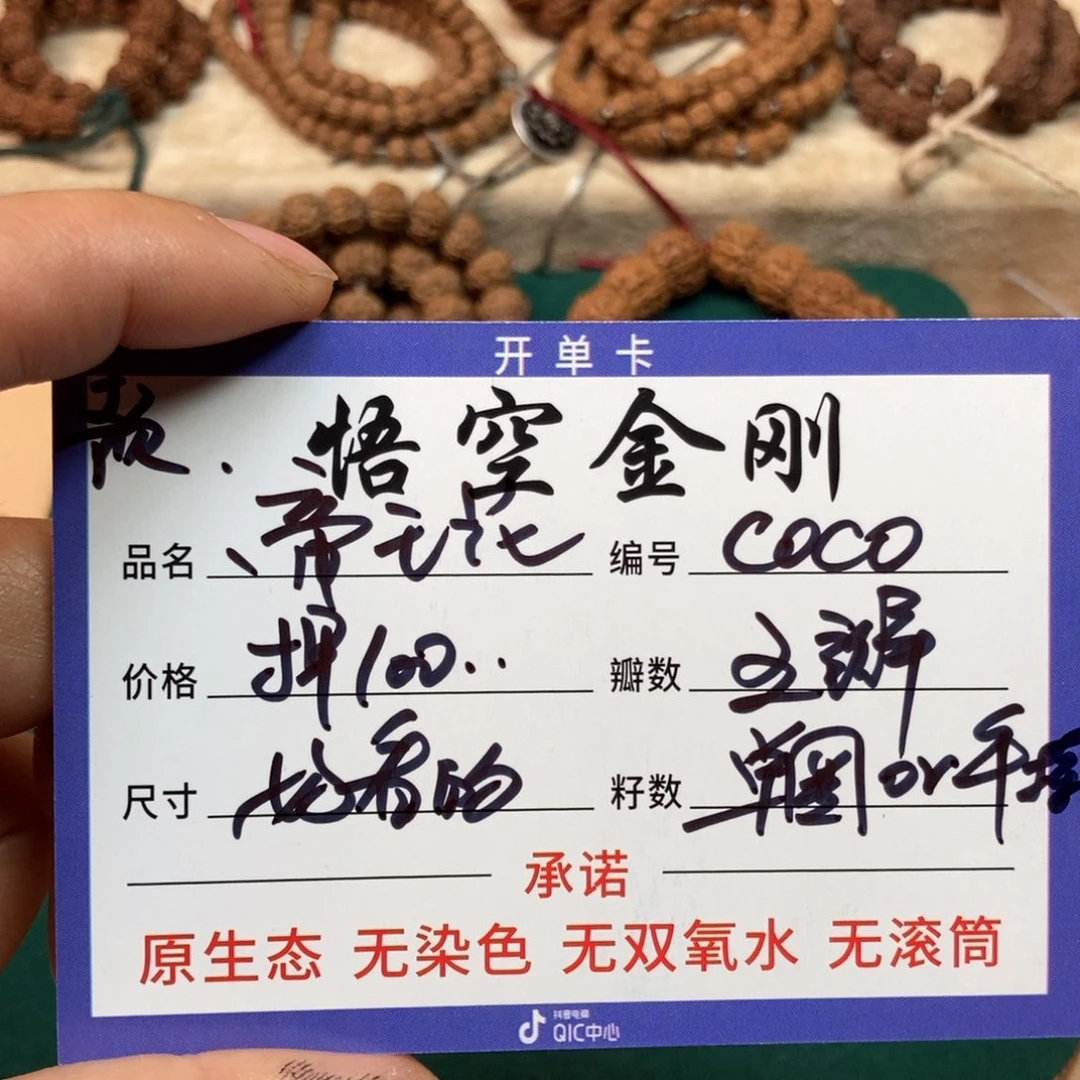 开单卡
悟空金刚
品名 编号 COCO
价格 押100.. 瓣数 五瓣
尺寸 籽数 单圈or手串
承诺
原生态 无染色 无双氧水 无滚筒
抖音电商
QIC中心